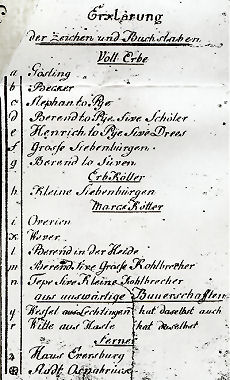 Erklärung
der Zeichen und Buchstaben
Voll Erbe
a Gösting
b Becker
c Stephan to Rye
d Berend to Rye Sive Schöler
e Henrich to Rye Sive Drees
f Grosse Siebenbürgen.
g Berend to Süren
Erb Kötter
h Kleine Siebenbürgen
Marck Kötter
i
x Wever
l Berend in der Heide
m Berend sive Grosse Kohlbrecher
n Jepe Sive Kleine Kohlbrecher
aus auswärtige Bauerschafften
y Wessel aus Lechtingen hat daselbst auch
r Witte aus Haste hat daselbst
ferner
Haus Eversburg
Stadt Osnabrück